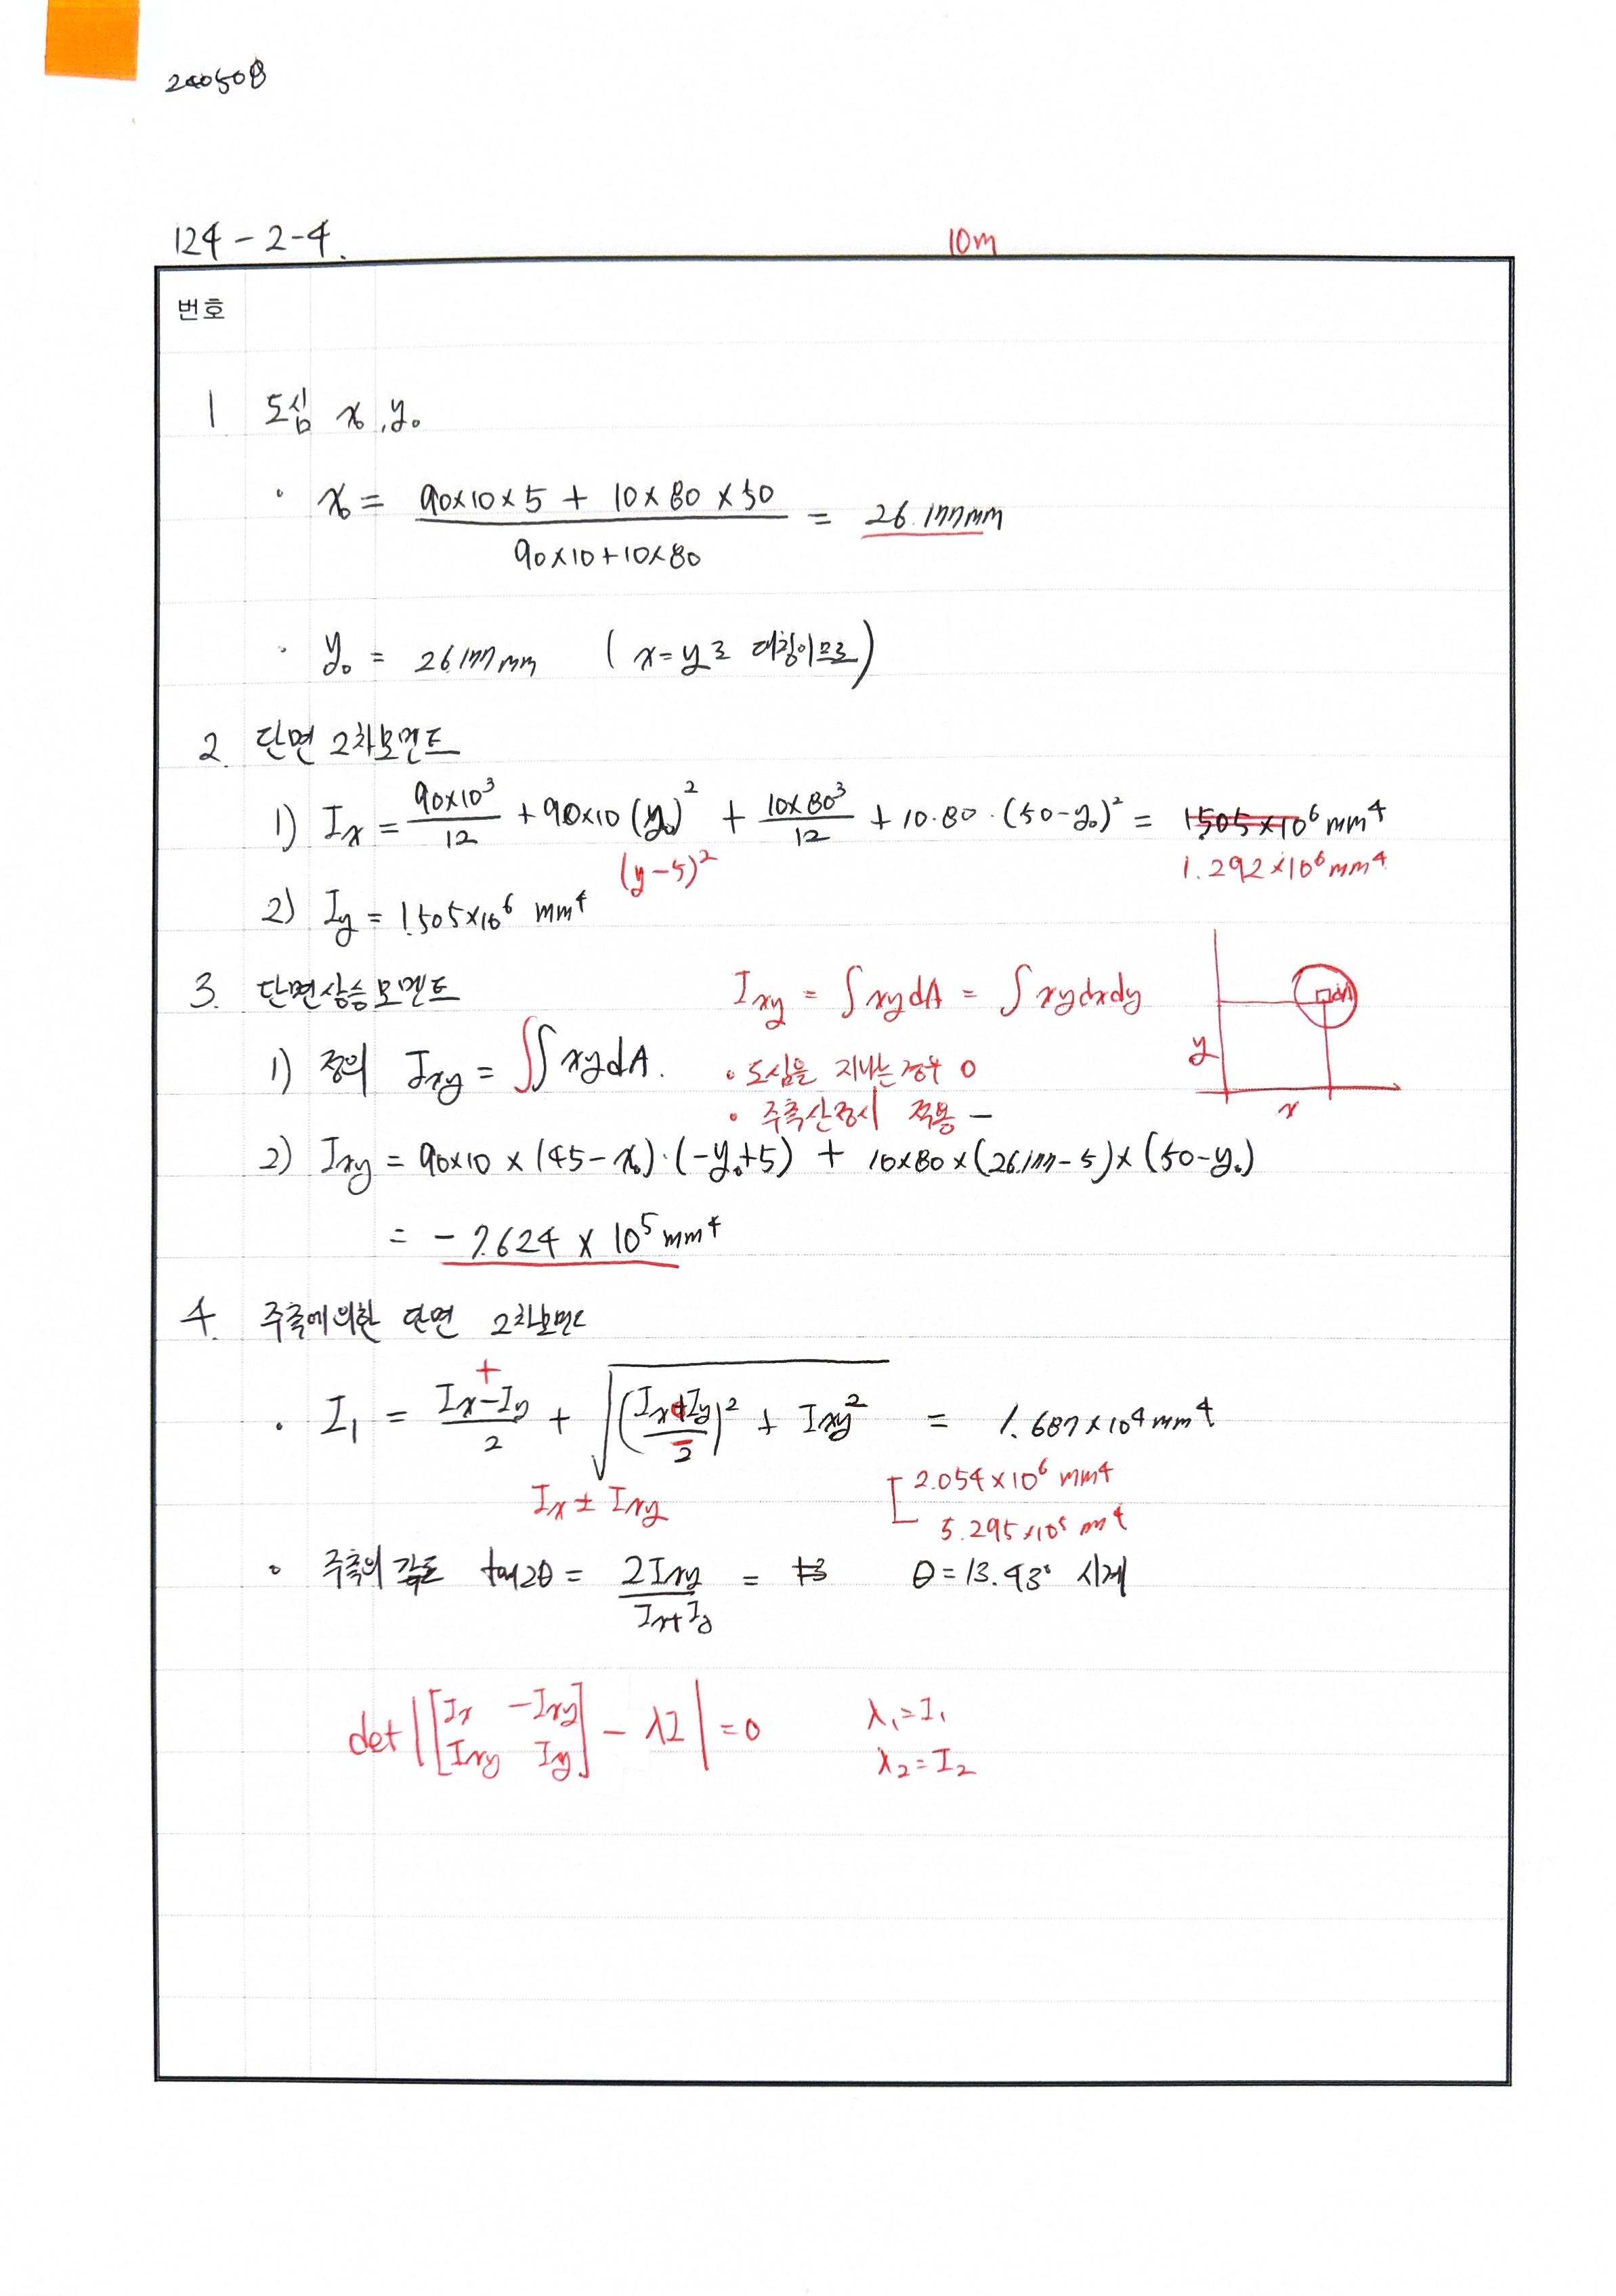 240508
124-2-4.
10m
번호
1 도심 x₀, y₀
· x₀ = (90×10×5 + 10×80×50) / (90×10+10×80) = 26.177mm
· y₀ = 26.177mm (x=y로 대칭이므로)
2. 단면 2차모멘트
1) Ix = 90×10³/12 + 90×10(y₀)² + 10×80³/12 + 10·80·(50-y₀)² = 1505×10⁶mm⁴
(y-5)² 1.292×10⁶mm⁴
2) Iy = 1.505×10⁶ mm⁴
3. 단면상승모멘트
Ixy = ∫xydA = ∫xydxdy
dA
y
x
1) 정의 Ixy = ∬xydA.
· 도심을 지나는 경우 0
· 주축산정시 적용 -
2) Ixy = 90×10×(45-x₀)·(-y₀+5) + 10×80×(26.177-5)×(50-y₀)
= -7.624×10⁵mm⁴
4. 주축에 의한 단면 2차모멘트
+
· I₁ = (Ix-Iy)/2 + √((Ix+Iy)/2)² + Ixy² = 1.687×10⁴mm⁴
Ix ± Ixy
[2.054×10⁶ mm⁴
5.295×10⁵ mm⁴
· 주축의 각도 tan2θ = 2Ixy/(Ix+Iy) = θ=13.93° 시계
det|[Ix -Ixy
Ixy Iy] - λI| = 0
λ₁=I₁
λ₂=I₂